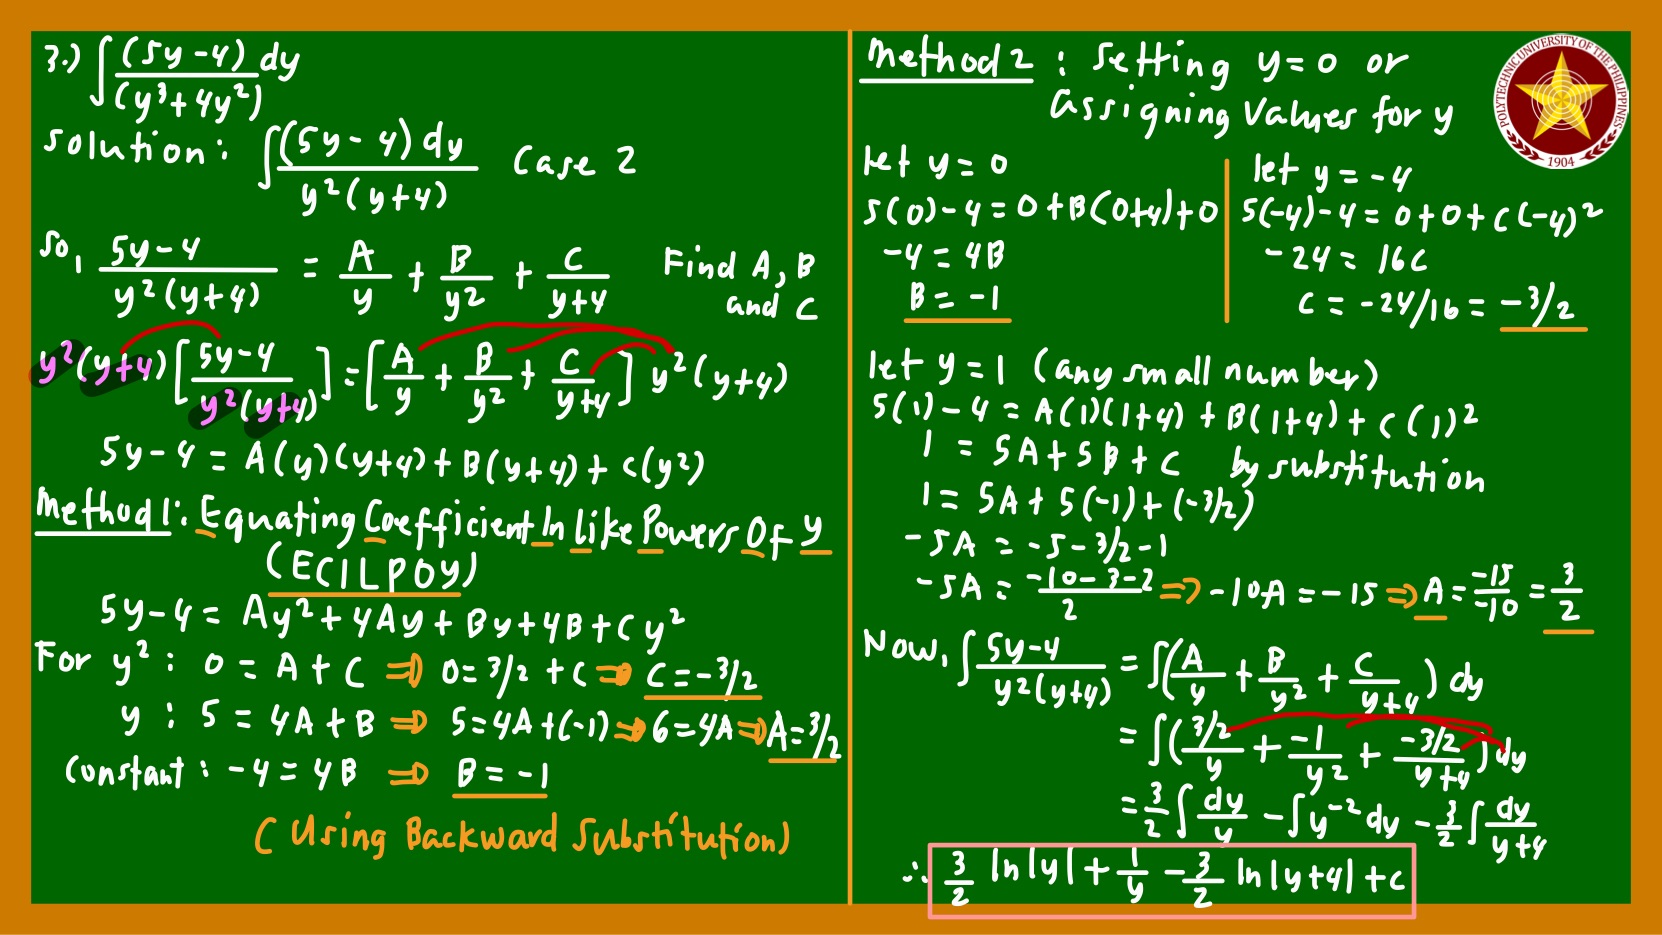 3.) ∫ (5y - 4) dy / (y³ + 4y²)
Solution: ∫ (5y - 4) dy / y²(y+4) Case 2
So, 5y - 4 / y²(y+4) = A/y + B/y² + C/y+4 Find A, B and C
y²(y+4) [5y - 4 / y²(y+4)] = [A/y + B/y² + C/y+4] y²(y+4)
5y - 4 = A(y)(y+4) + B(y+4) + C(y²)
Method 1: Equating Coefficient In Like Powers Of y
(ECILPOy)
5y - 4 = Ay² + 4Ay + By + 4B + Cy²
For y² : 0 = A + C ⇒ 0 = 3/2 + C ⇒ C = -3/2
y : 5 = 4A + B ⇒ 5 = 4A + (-1) ⇒ 6 = 4A ⇒ A = 3/2
Constant : -4 = 4B ⇒ B = -1
(Using Backward Substitution)
Method 2 : Setting y = 0 or
Assigning Values for y
POLYTECHNIC UNIVERSITY OF THE PHILIPPINES
1904
let y = 0
5(0) - 4 = 0 + B(0+4) + 0
-4 = 4B
B = -1
let y = -4
5(-4) - 4 = 0 + 0 + C(-4)²
-24 = 16C
C = -24/16 = -3/2
let y = 1 (any small number)
5(1) - 4 = A(1)(1+4) + B(1+4) + C(1)²
1 = 5A + 5B + C by substitution
1 = 5A + 5(-1) + (-3/2)
-5A = -5 - 3/2 - 1
-5A = -10 - 3 - 2 / 2 ⇒ -10A = -15 ⇒ A = -15/-10 = 3/2
Now, ∫ 5y - 4 / y²(y+4) = ∫(A/y + B/y² + C/y+4) dy
= ∫(3/2 / y + -1/y² + -3/2 / y+4) dy
= 3/2 ∫ dy/y - ∫ y⁻² dy - 3/2 ∫ dy/y+4
∴ 3/2 ln|y| + 1/y - 3/2 ln|y+4| + C